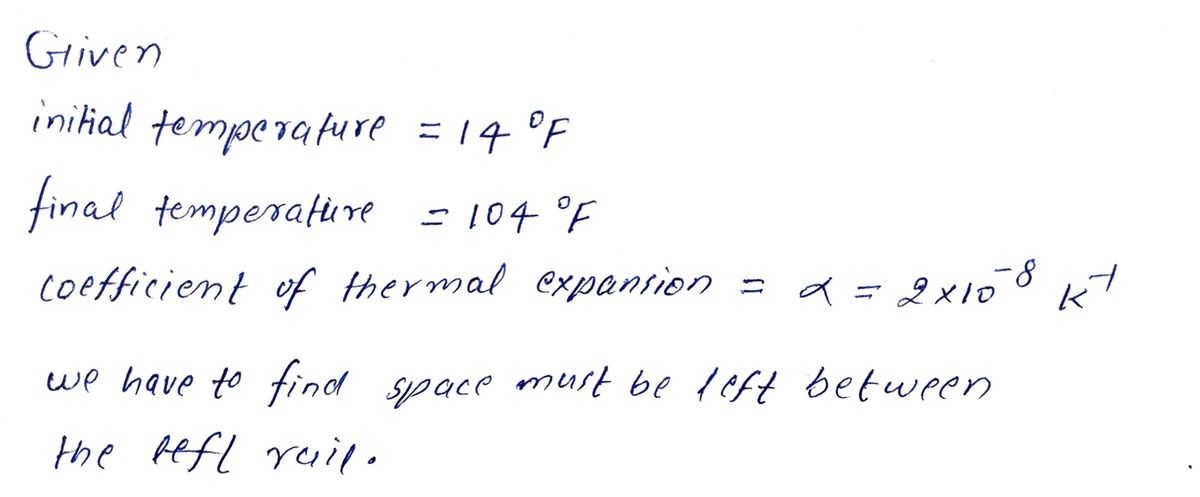 Given
initial temperature = 14 °F
final temperature = 104 °F
coefficient of thermal expansion = α = 2×10⁻⁸ K⁻¹
we have to find space must be left between
the left rail.